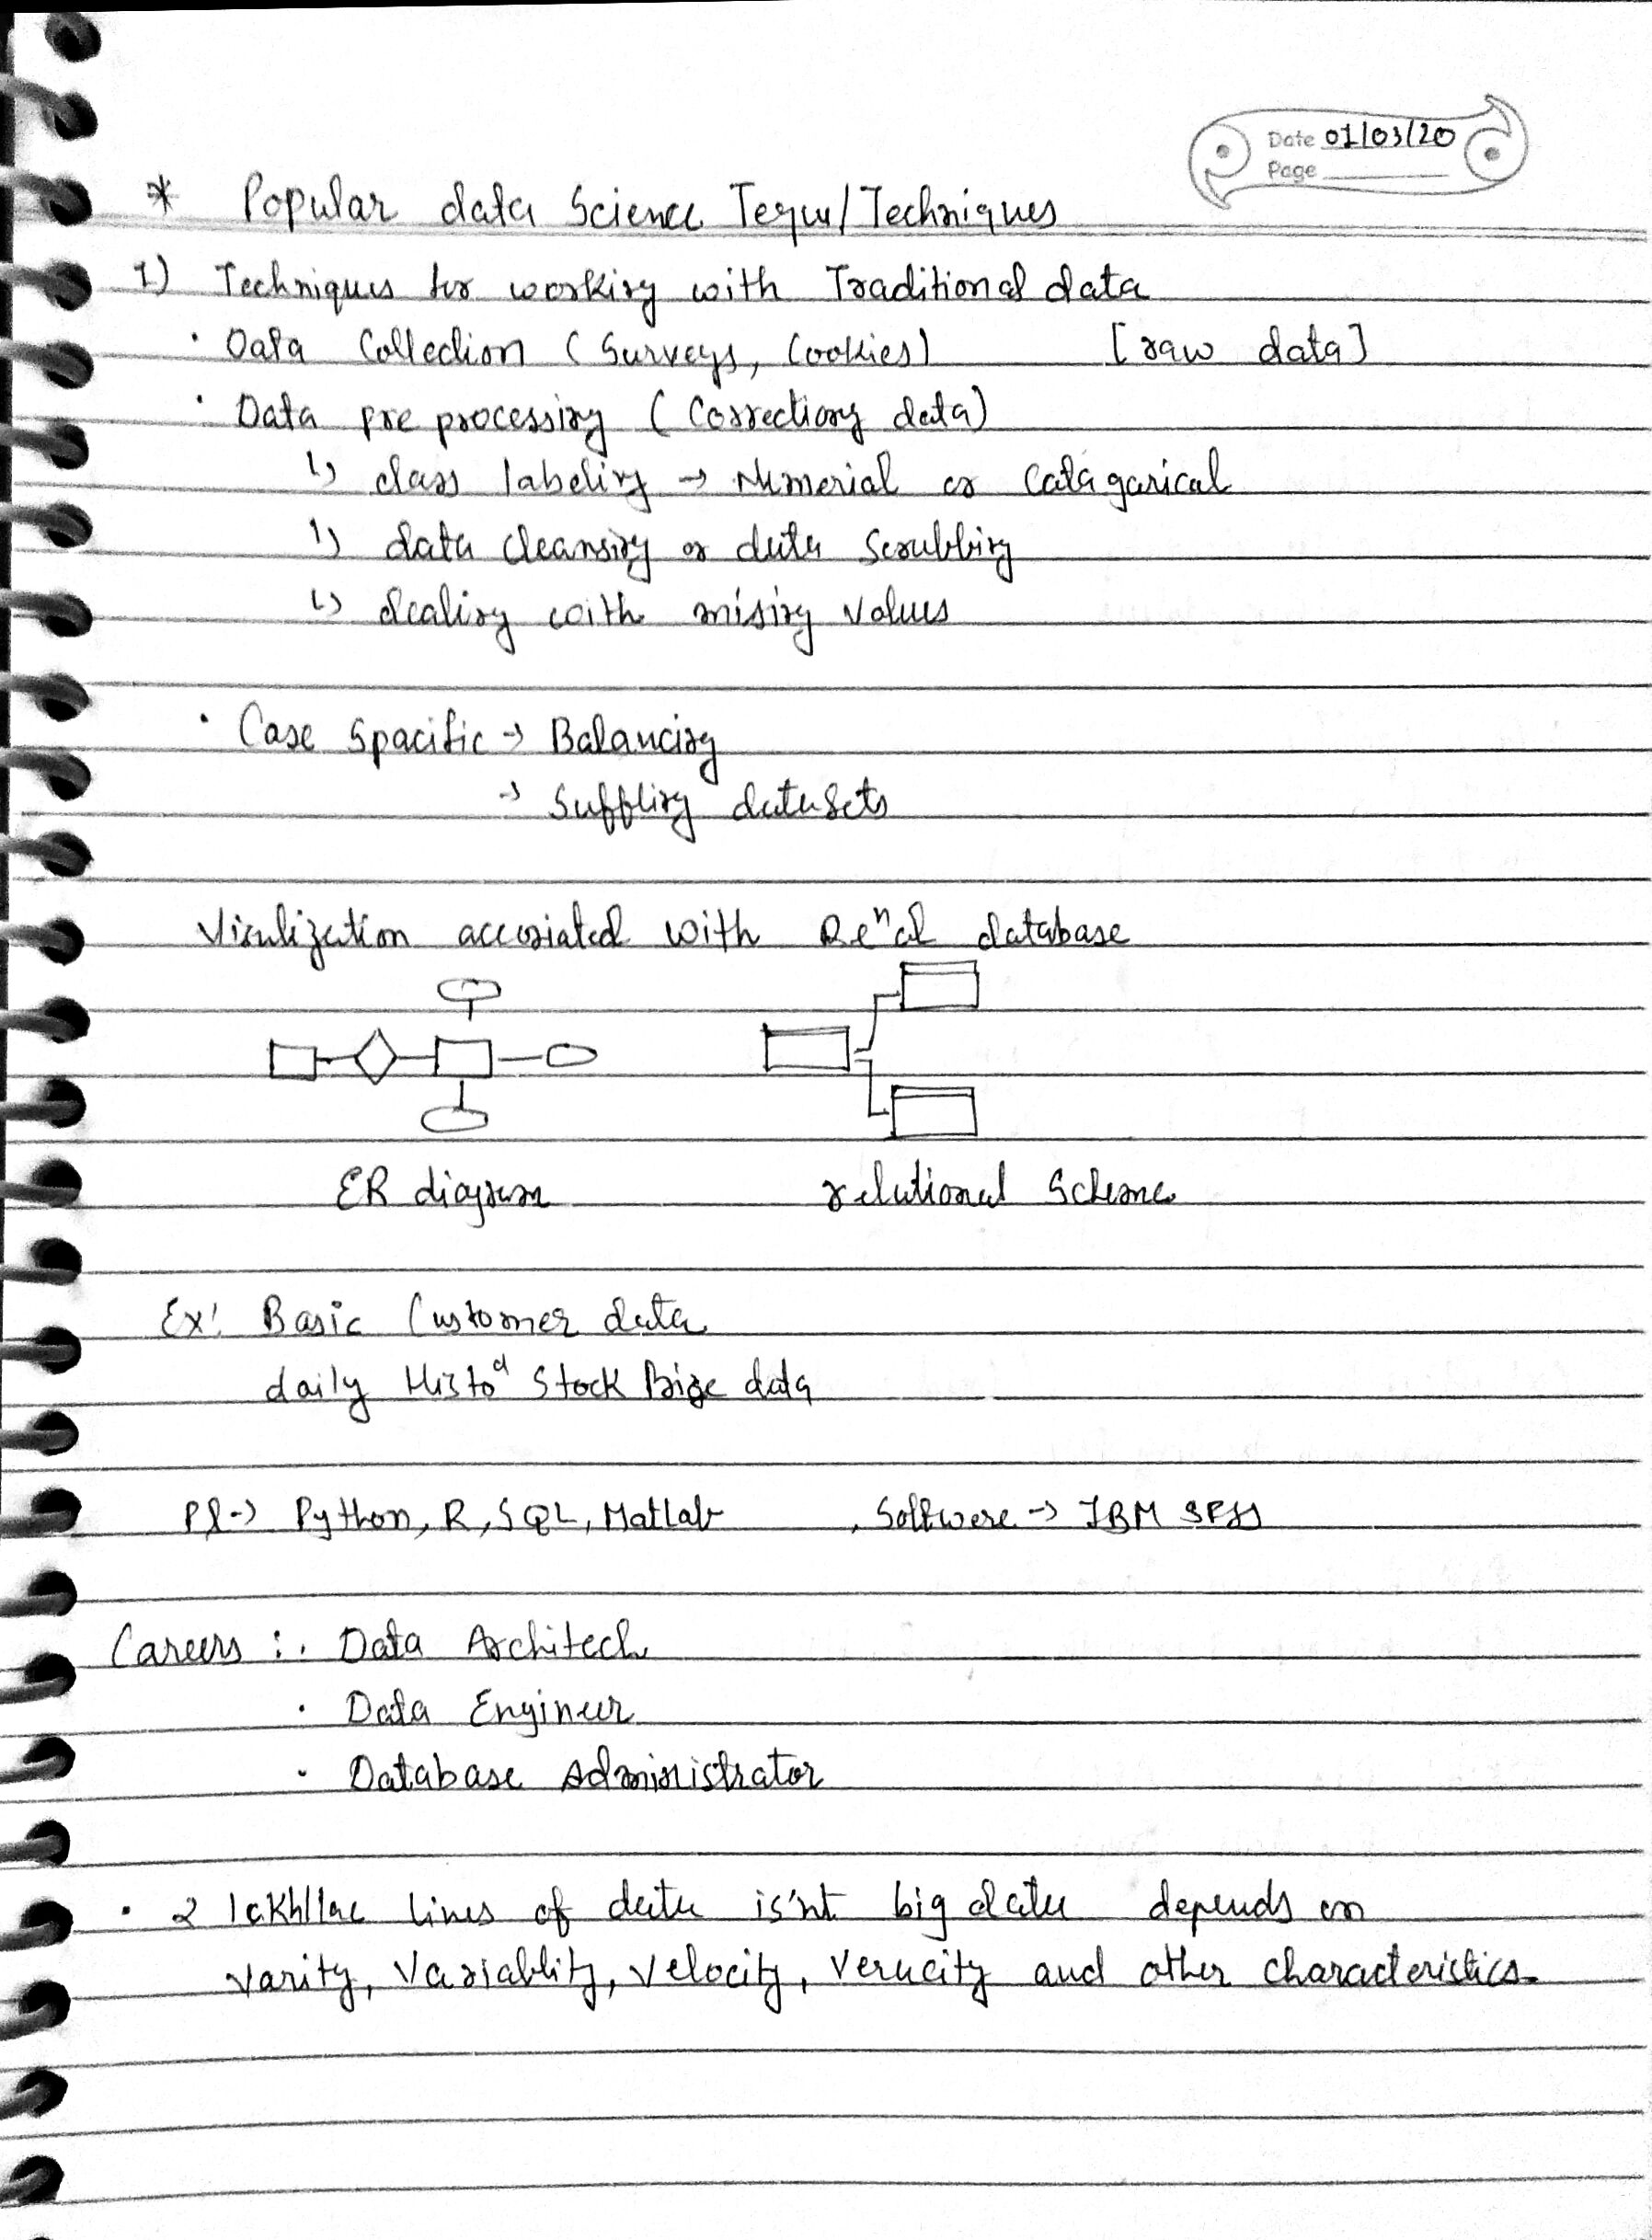 Date 01/03/20
Page
* Popular data Science Teqw/Techniques
1) Techniques for working with Traditional data
· Data Collection (Surveys, Cookies) [raw data]
· Data pre processing (Correctiong data)
↳ class labeling → Numerial or Catagarical
↳ data cleansing or data Scrubbing
↳ dealing with mising values
· Case Spacific → Balancing
→ Suffling datasets
Visulization accosiated with Reⁿal database
ER diagram relational Scheme
Ex: Basic Customer data
daily Histoᵈ Stock Prize data
Pl → Python, R, SQL, Matlab , Software → IBM SPSS
Careers : · Data Architech
· Data Engineer
· Database Administrator
· 2 lakh/lac lines of data is'nt big data depends on
varity, Variablity, Velocity, Veracity and other characteristics.